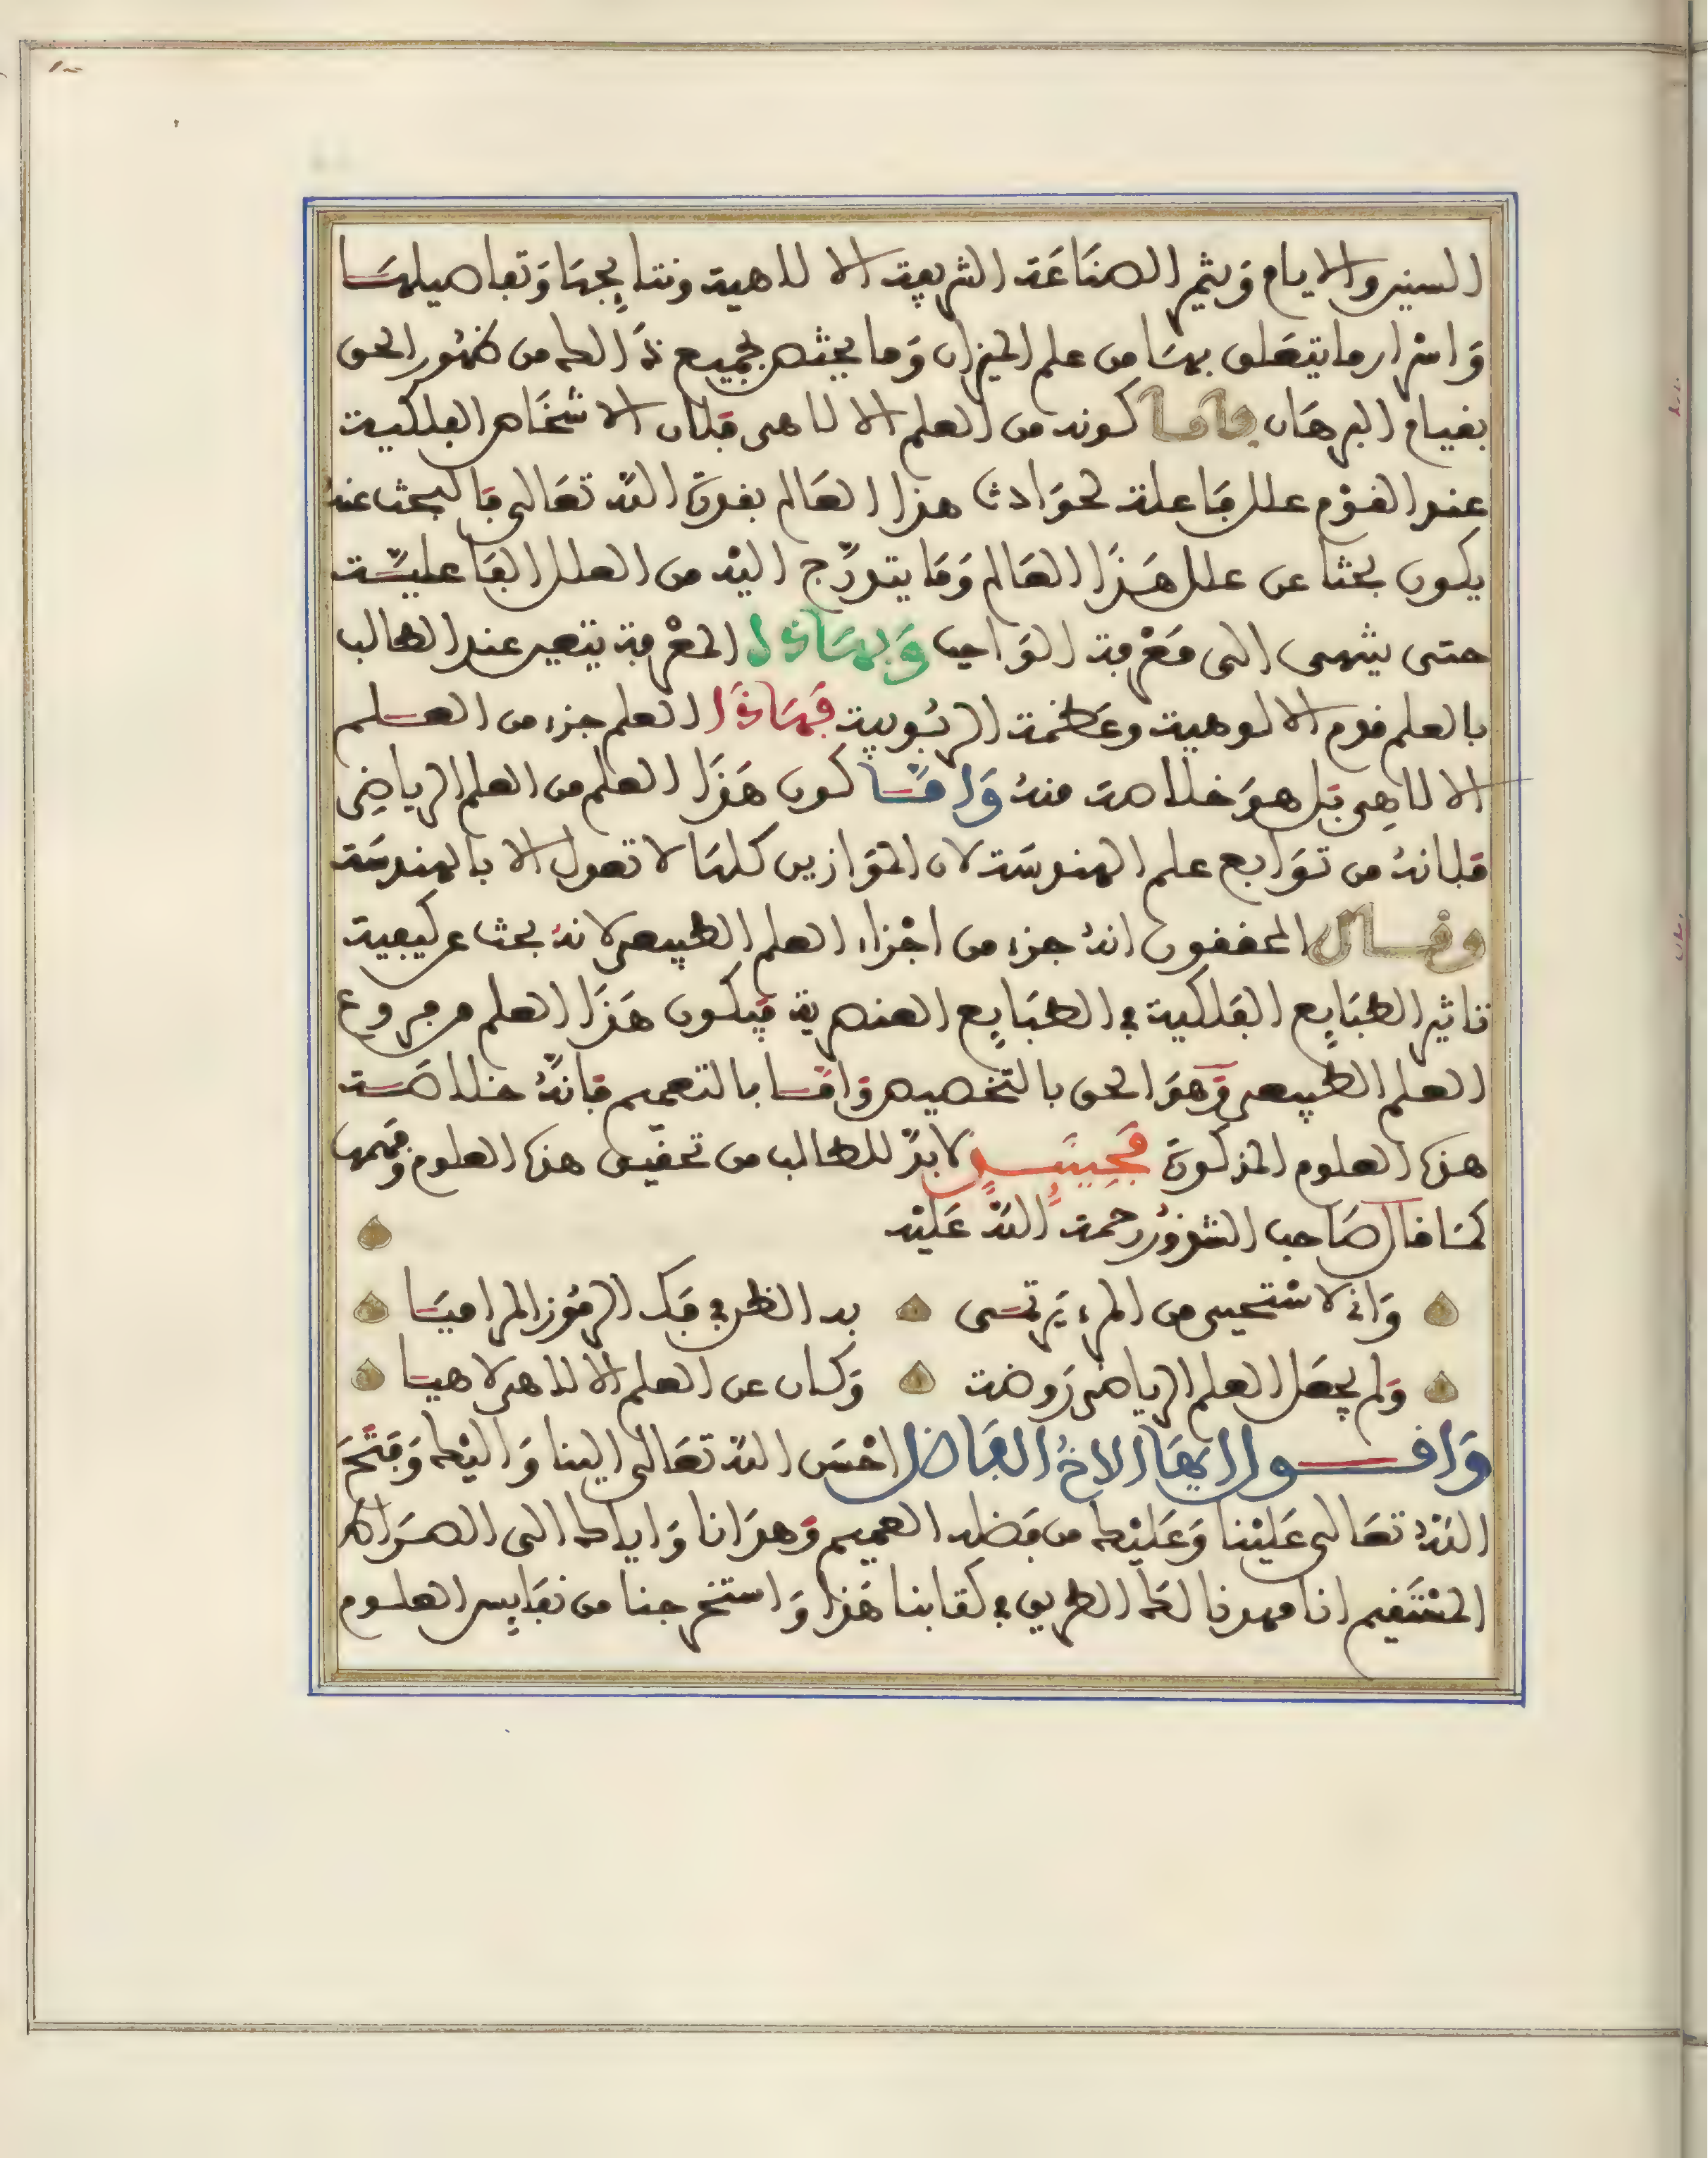 السنين والايام ويثمر الصنَاعَة الشريفة الالاهية ونتايجهَا وَتفاصيلهَا
وَاسْرار ما يتعَلق بهَا من علم الميزان وَما يجثه لجميع ذَالك من ظهُور الحق
بقيام البرهَان فأما كونه من العلم الالاهى فلان الاشخَاص الفلكية
عند القوْم علل فَاعلة لحوَادث هذا العَالم بقدرة الله تعَالى فَالبحث عنهَا
يكون بحثا عن علل هَذَا العَالم وَمَا يتدرّج اليْه من العلل الفَاعليّة
حتى ينتهى الى مَعْرفة الوَاجب وَبهَاذا المعْرفة يتعين عند الطالب
بالعلم قوم الالوهية وعَظمة الربُوبية فَهَاذَا العلم جزء من العلم
الالاهِى بَل هوَ خلاصة منهُ وَامَّا كون هَذَا العلم من العلم الرياضِى
فلانهُ من توَابع علم الهندسَة لان الموَازين كلهَا لا تعول الا بالهندسَة
وقال المحققون انهُ جزء من اجْزاء العلم الطبيعى لانهُ بحث عن كيفية
تاثير الطبَايِع الفَلكية في الطبَايِع العنصرية فيكون هَذَا العلم من فروع
العلم الطبيعى وَهوَ الحق بالتخصيص وَامَّا بالتعميم فَانّهُ خلاصَة
هذه العلوم المذكورة فَحِينَئِذٍ لابدّ للطالب من تحقيق هذه العلوم وَفهمهَا
كمَا قال صَاحب الشذورِ رحمة اللهُ عَليْه
وَانى لاسْتحيى من المرء يَرتمَى بد الظن في فَك الرمُوز المراميَا
وَلم يجعَل العلم الرياضى رَوضة وَكان عن العلم الالاهى لاهيَا
وَاقول ايّهَا الاخُ الفَاضل احْسَن الله تعَالى الينا وَاليْك وَفَتَحَ
اللهُ تعَالى عَليْنا وَعَليْك من فضله العميم وَهدَانا وَاياك الى الصرَاط
المسْتَقيم انا مهدنا لكَ الطريق في كتابنا هَذا وَاستخرجنا من نفَايِس العلوم